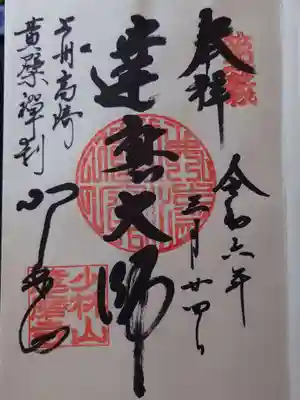 奉拝
令和六年
三月廿四日
達磨大師
上州高崎
黄檗禪刹
少林山
達磨寺